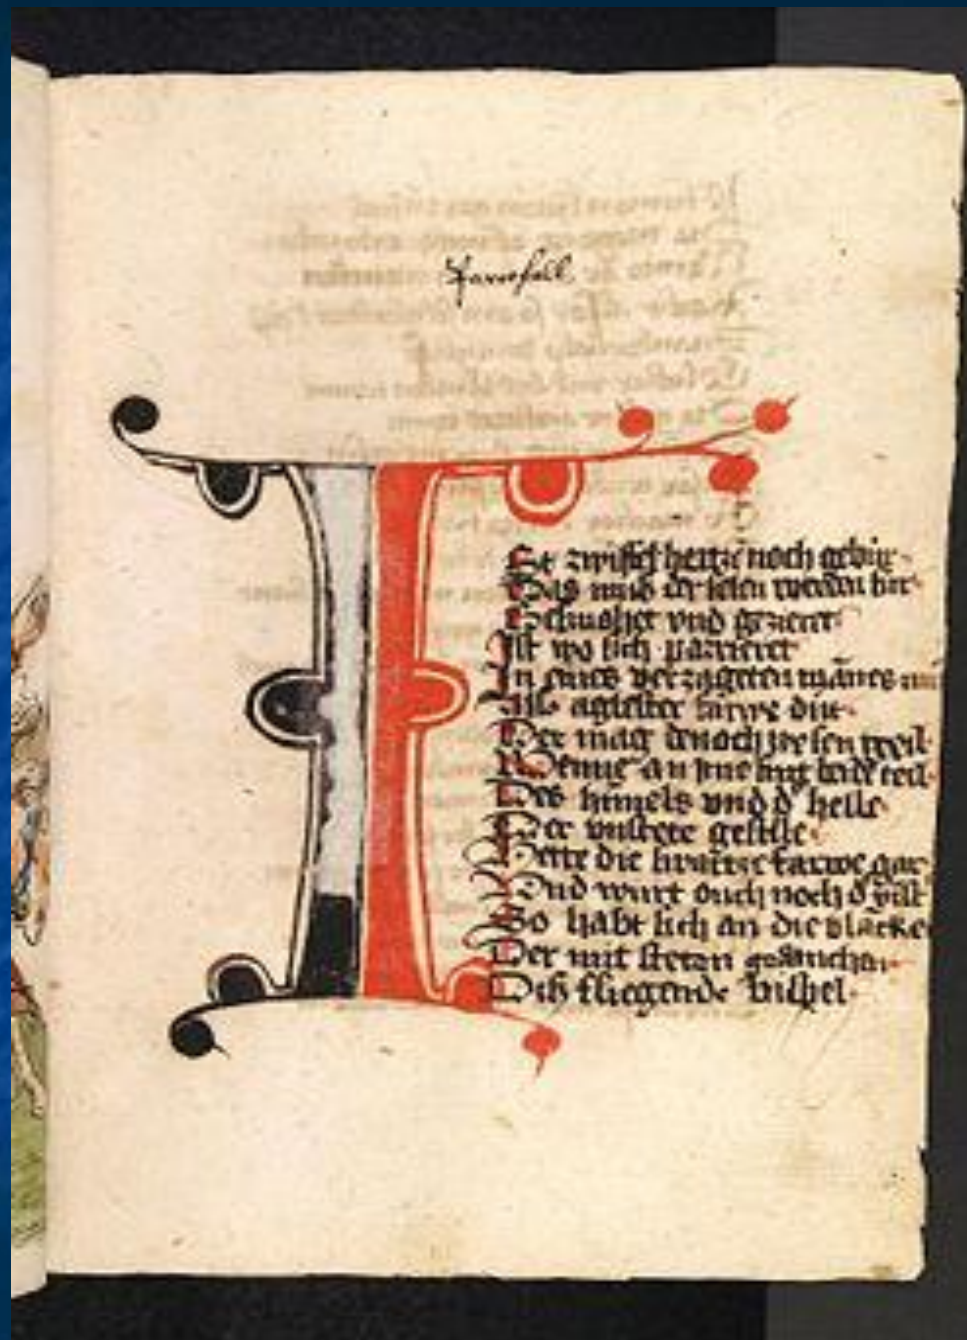 Parcifall
I
St zwifel hertze noch gebur
Das mus der selen werden sur
Gesmohet vnd gezieret
Ist wo sich parrieret
In eines verzageten mannes
Als agelster farwe dut
Der mag denoch wesen geil
Wenne an ime sint beide teil
Des himels vnd d' helle
Der vnstete geselle
Hette die swartze farwe gar
Vnd wurt ouch noch d'
So habt sich an die blancke
Der mit steten gedancken
Dis fliegende bispel